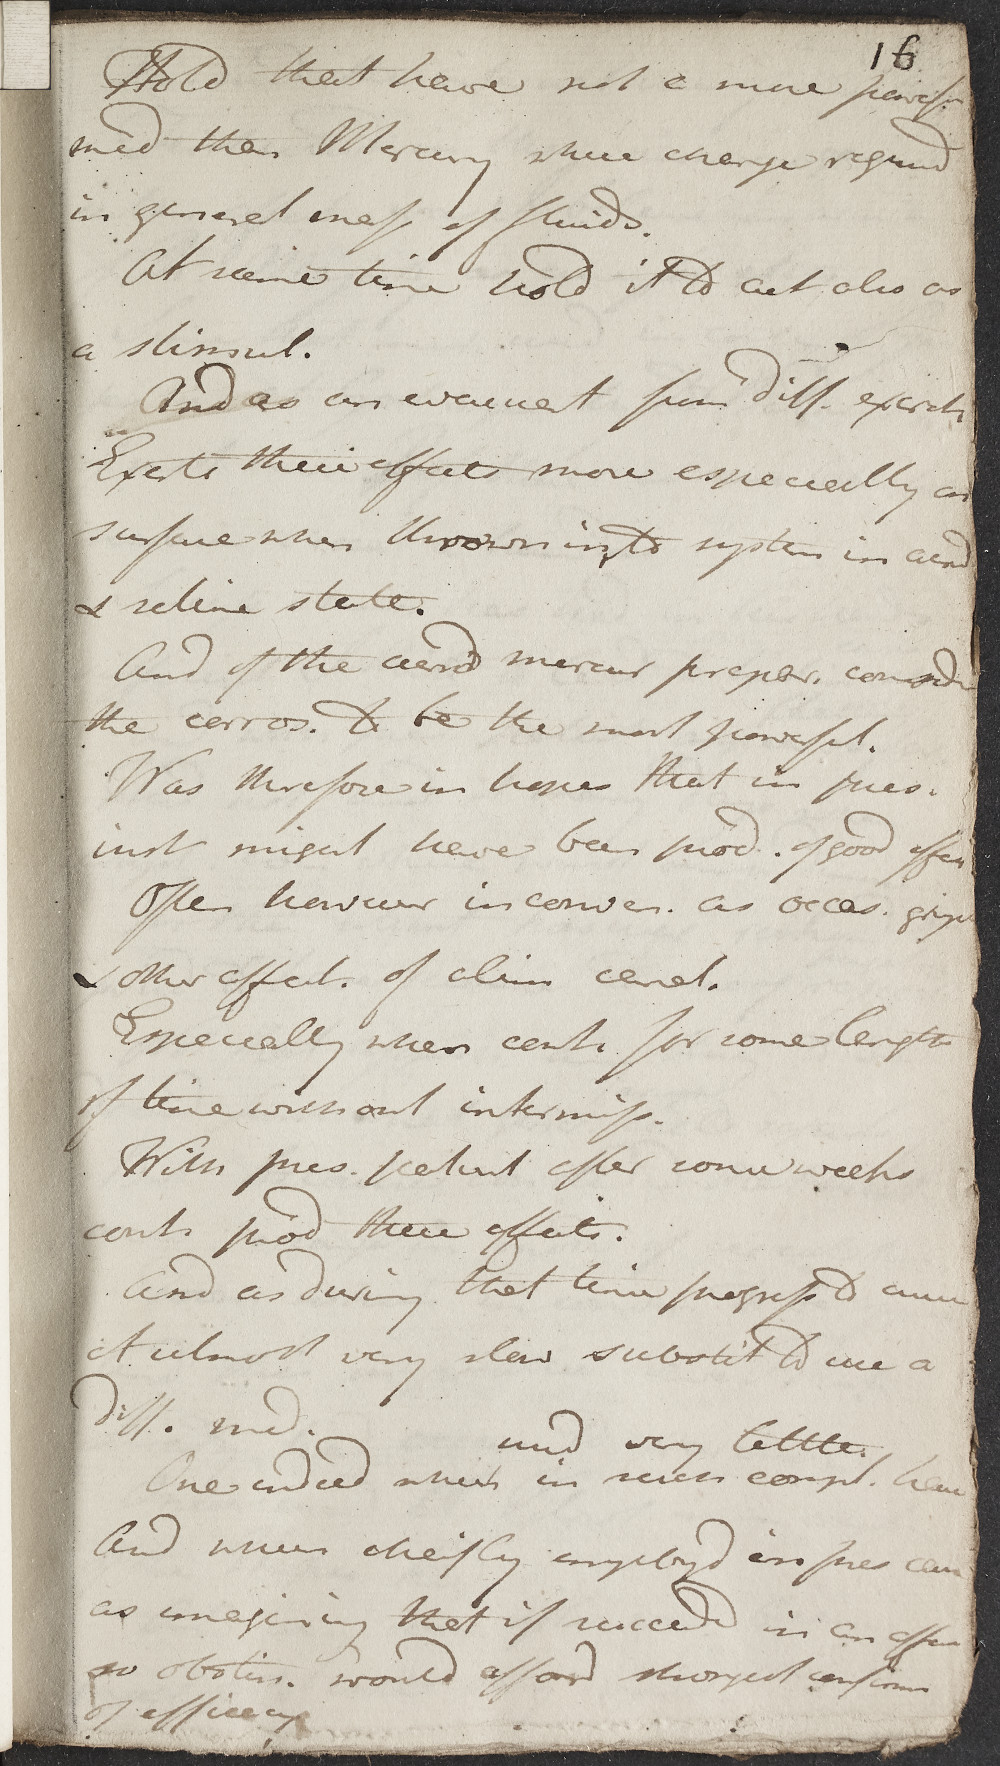 16
Hold that have not a more powerf.
med than Mercury where change requird
in general mass of fluids.
At same time hold it to act also as
a stimul.
And as an evacuant from diff. excret
Exerts their effects more especially on
surface when thrown into system in acrid
& saline state.
And of the acrid mercur prepar. consider
the corros. to be the most powerful.
Was therefore in hopes that in pres.
inst might have been prod. of good effect
Often however inconven. as occas. gripe
& other affect. of alim canal.
Especially when cont. for some length
of time without intermiss.
With pres. patient after some weeks
cont. prod these effects.
And as during that time progress to cure
at utmost very slow substit to use a
diff. med.
and very little.
One indeed which in such compl. have
And when cheifly employd in pres case
as imagining that if succeed in an affec
so obstin. would afford strongest confirm
of efficacy